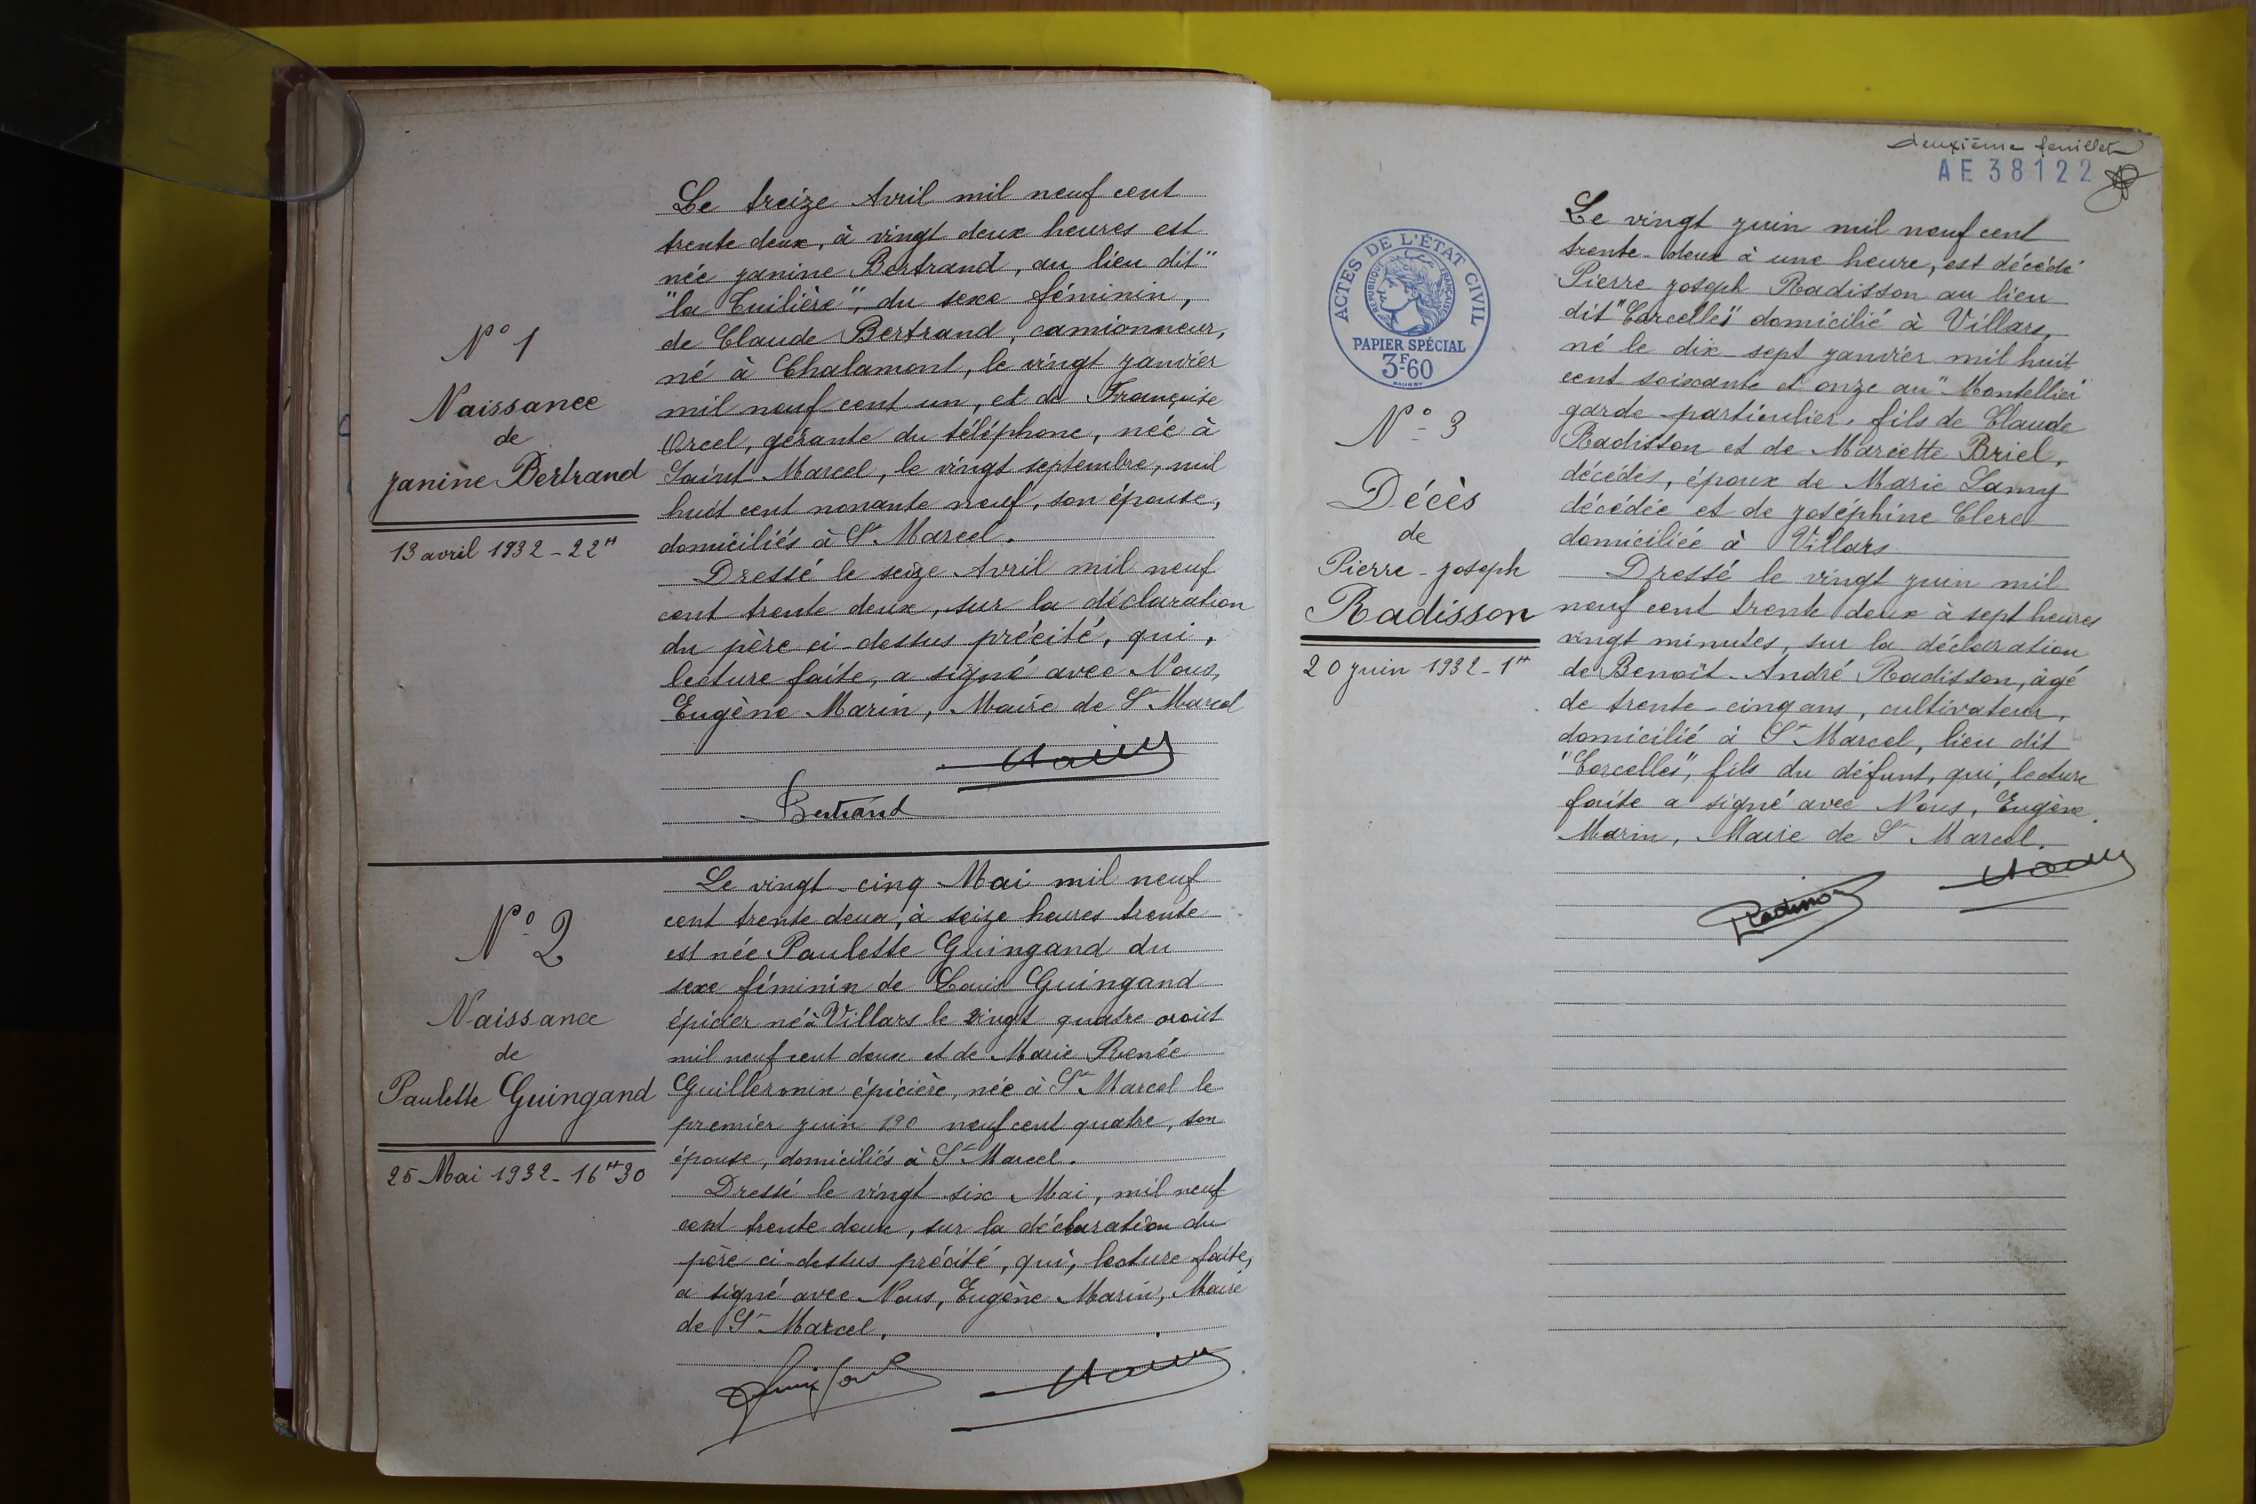 N° 1
Naissance
de
Janine Bertrand
13 avril 1932 - 22H
Le treize Avril mil neuf cent
trente deux, à vingt deux heures est
née Janine Bertrand, au lieu dit "
"la Tuilière", du sexe féminin,
de Claude Bertrand, camionneur,
né à Chalamont, le vingt janvier
mil neuf cent un, et de Françoise
Orcel, gérante du téléphone, née à
Saint Marcel, le vingt septembre, mil
huit cent nonante neuf, son épouse,
domiciliés à St Marcel.
Dressé le seize Avril mil neuf
cent trente deux, sur la déclaration
du père ci-dessus précité, qui,
lecture faite, a signé avec Nous,
Eugène Marin, Maire de St Marcel
Marin
Bertrand
N° 2
Naissance
de
Paulette Guingand
25 Mai 1932 - 16H30
Le vingt-cinq Mai mil neuf
cent trente deux, à seize heures trente
est née Paulette Guingand du
sexe féminin de Louis Guingand
épicier né à Villars le vingt quatre août
mil neuf cent deux et de Marie Renée
Guillermin épicière, née à St Marcel le
premier juin 190 neuf cent quatre, son
épouse, domiciliés à St Marcel.
Dressé le vingt-six Mai, mil neuf
cent trente deux, sur la déclaration du
père ci-dessus précité, qui, lecture faite,
a signé avec Nous, Eugène Marin, Maire
de St Marcel.
Guingand
Marin
deuxième feuillet
AE38122
ACTES DE L'ÉTAT CIVIL
RÉPUBLIQUE FRANÇAISE
PAPIER SPÉCIAL
3F60
N° 3
Décès
de
Pierre-Joseph
Radisson
20 juin 1932 - 1H
Le vingt juin mil neuf cent
trente-deux à une heure, est décédé
Pierre Joseph Radisson au lieu
dit "Corcelles" domicilié à Villars,
né le dix-sept janvier mil huit
cent soixante et onze au "Montellier"
garde-particulier, fils de Claude
Radisson et de Mariette Briel,
décédés, époux de Marie Lamy
décédée et de Joséphine Clerc
domiciliée à Villars
Dressé le vingt juin mil
neuf cent trente deux à sept heures
vingt minutes, sur la déclaration
de Benoît-André Radisson, âgé
de trente-cinq ans, cultivateur,
domicilié à St Marcel, lieu dit
"Corcelles", fils du défunt, qui, lecture
faite a signé avec Nous, Eugène
Marin, Maire de St Marcel.
Radisson
Marin